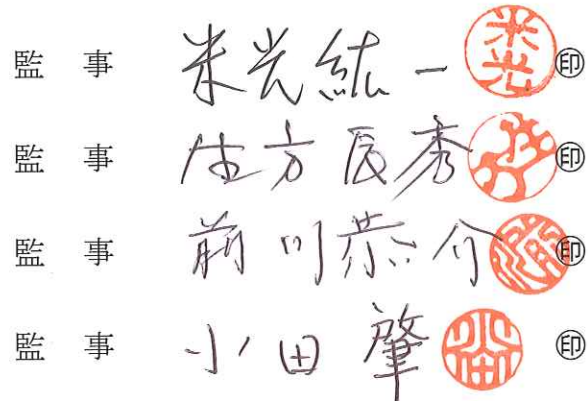 監 事 米光紘一 米光 ㊞
監 事 生方辰秀 ㊞
監 事 前川恭介 ㊞
監 事 小田 肇 小田 ㊞